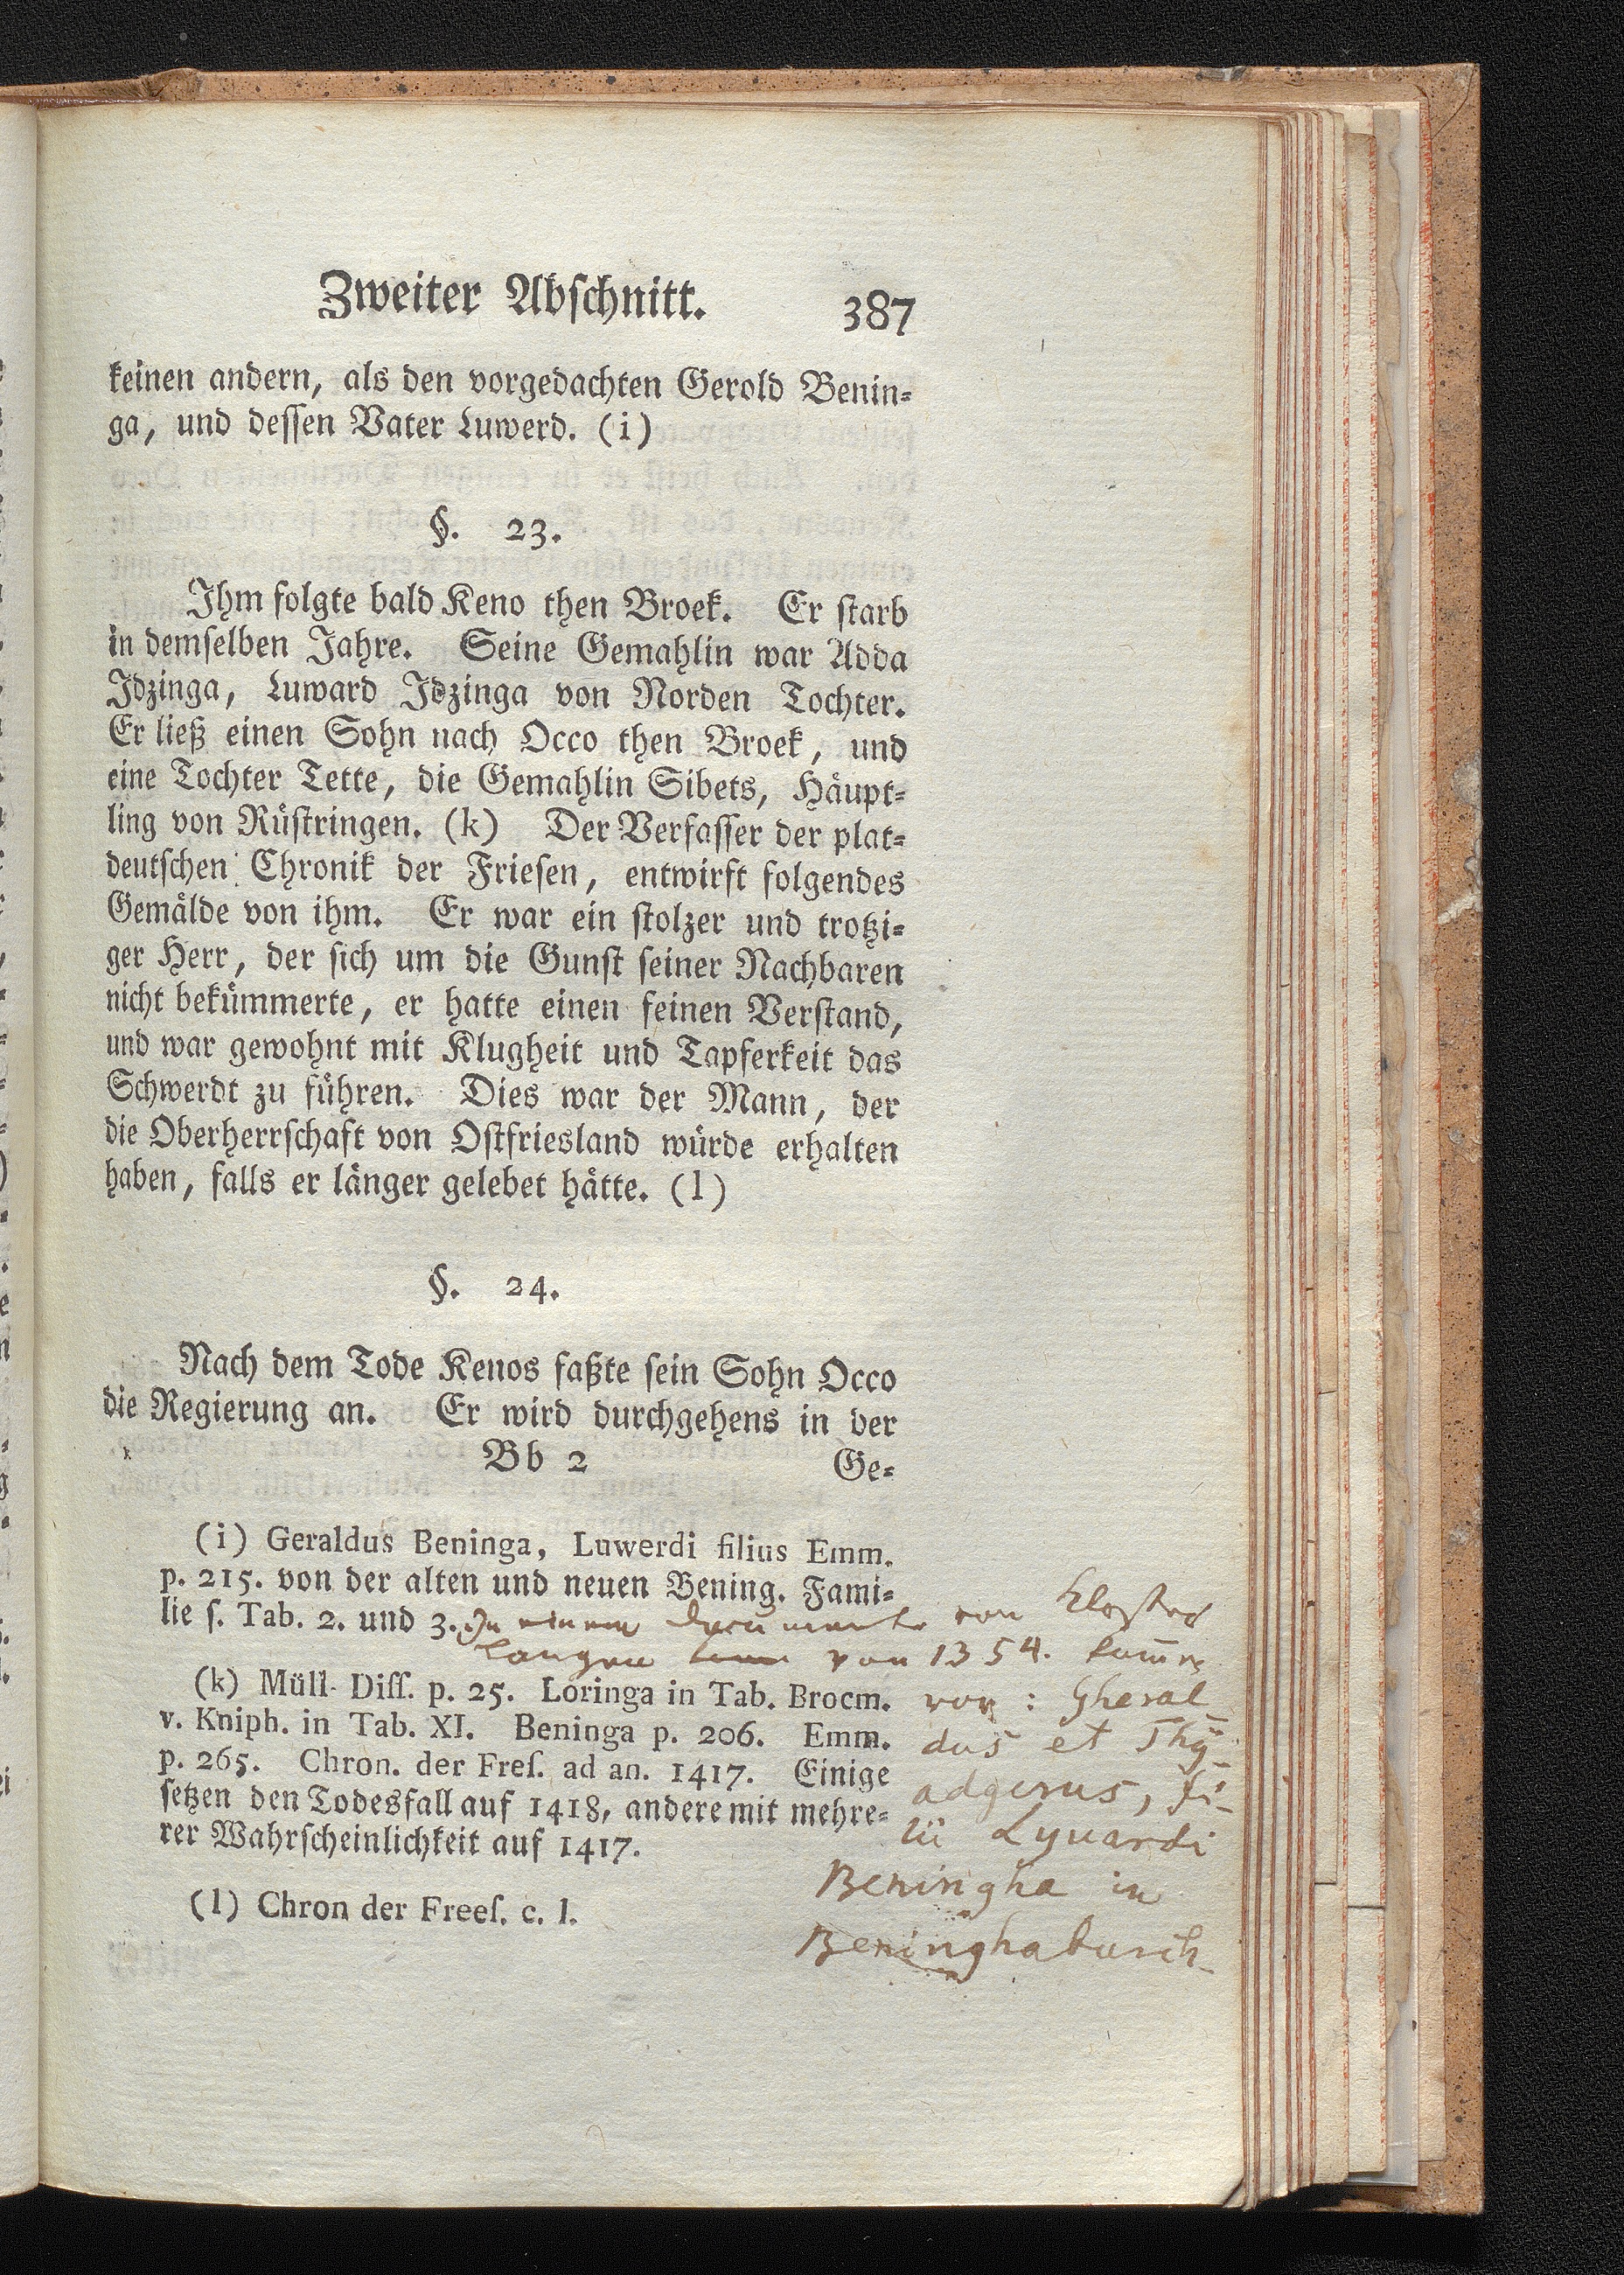 Zweiter Abschnitt. 387
keinen andern, als den vorgedachten Gerold Benin-
ga, und dessen Vater Luwerd. (i)
§. 23.
Ihm folgte bald Keno then Broek. Er starb
in demselben Jahre. Seine Gemahlin war Adda
Idzinga, Luward Idzinga von Norden Tochter.
Er ließ einen Sohn nach Occo then Broek, und
eine Tochter Tette, die Gemahlin Sibets, Häupt-
ling von Rüstringen. (k) Der Verfasser der plat-
deutschen Chronik der Friesen, entwirft folgendes
Gemälde von ihm. Er war ein stolzer und trotzi-
ger Herr, der sich um die Gunst seiner Nachbaren
nicht bekümmerte, er hatte einen feinen Verstand,
und war gewohnt mit Klugheit und Tapferkeit das
Schwerdt zu führen. Dies war der Mann, der
die Oberherrschaft von Ostfriesland würde erhalten
haben, falls er länger gelebet hätte. (l)
§. 24.
Nach dem Tode Kenos faßte sein Sohn Occo
die Regierung an. Er wird durchgehens in der
Bb 2 Ge-
(i) Geraldus Beninga, Luwerdi filius Emm.
p. 215. von der alten und neuen Bening. Fami-
lie s. Tab. 2. und 3.
In einem Documente von Kloster
Langen von 1354. kom̄en
vor: Gheral
dus et Thy-
adgerus, fi-
lii Lyuardi
Beningha in
(k) Müll. Diss. p. 25. Loringa in Tab. Brocm.
v. Kniph. in Tab. XI. Beninga p. 206. Emm.
p. 265. Chron. der Fres. ad an. 1417. Einige
setzen den Todesfall auf 1418, andere mit mehre-
rer Wahrscheinlichkeit auf 1417.
(l) Chron der Frees. c. l.